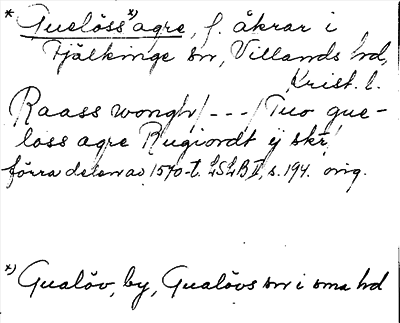 * Guelöss*) agre, f. åkrar i
Fjälkinge sn, Villands hd,
Krist. l.
Raass wongh /---/ Tuo gue-
löss agre Rugiordt ij skr
förra delen av 1570-t. LSLB II, s. 194. orig.
*) Gualöv, by, Gualövs sn i sma hd